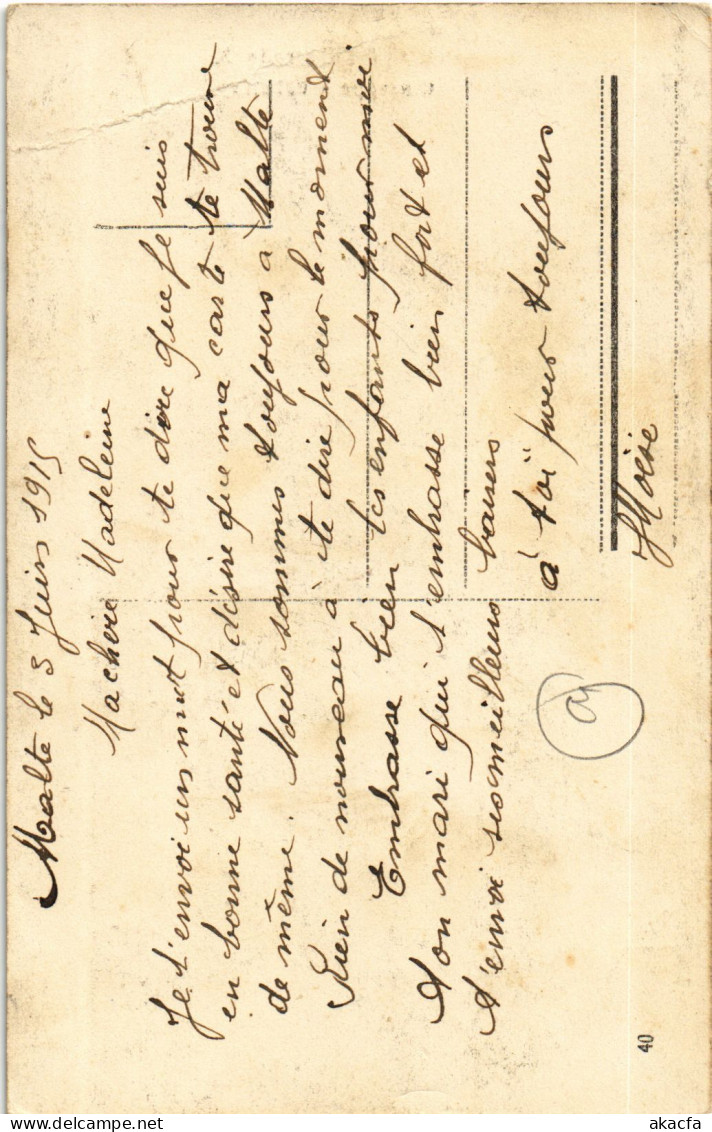 Malte le 3 Juin 1915
Machère Madeleine
Je t'envoi un mot pour te dire que je suis
en bonne santé et désire que ma carte te trouve
de même. Nous sommes toujours a Malte
Rien de nouveau à te dire pour le moment
Embrasse bien les enfants pour moi
ton mari qui t'embrasse bien fort et
t'envoi ses meilleurs baisers
à toi pour toujours
Moïse
40
akacfa